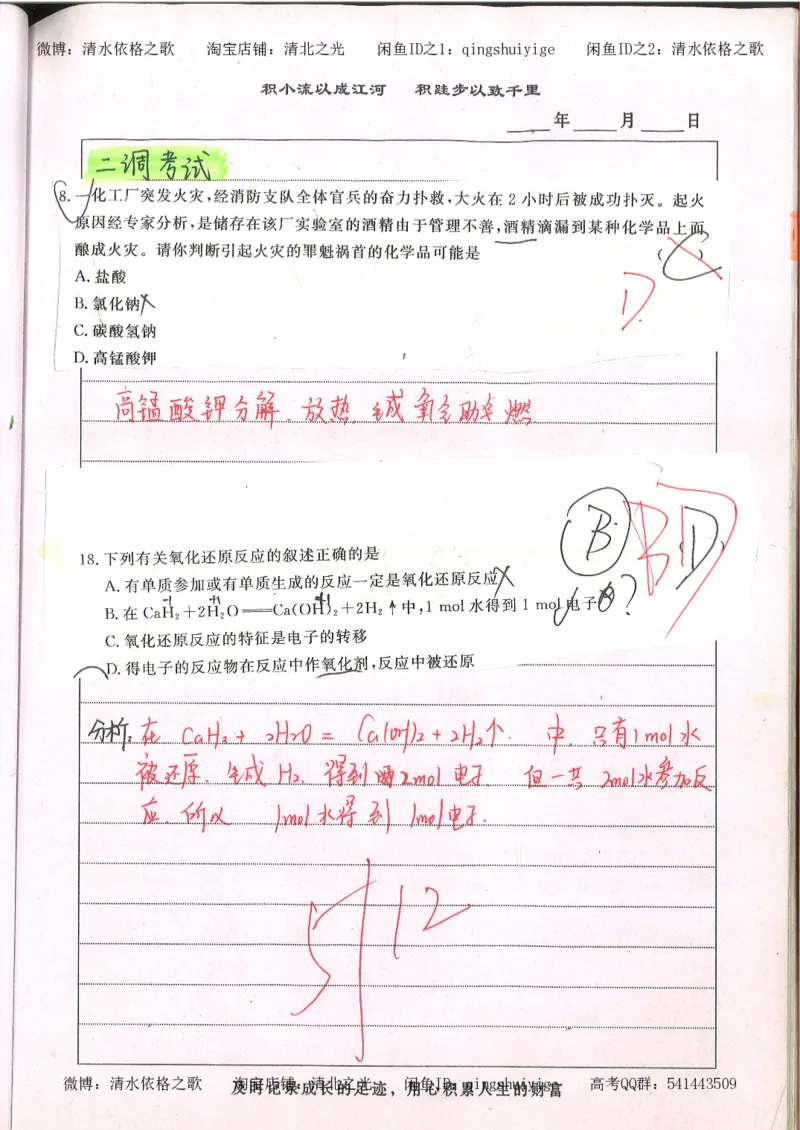 微博：清水依格之歌 淘宝店铺：清北之光 闲鱼ID之1：qingshuiyige 闲鱼ID之2：清水依格之歌
积小流以成江河 积跬步以致千里
年 月 日
二调考试
8. 一化工厂突发火灾,经消防支队全体官兵的奋力扑救,大火在 2 小时后被成功扑灭。起火
原因经专家分析,是储存在该厂实验室的酒精由于管理不善,酒精滴漏到某种化学品上而
酿成火灾。请你判断引起火灾的罪魁祸首的化学品可能是
(C)
A. 盐酸
D.
B. 氯化钠
C. 碳酸氢钠
D. 高锰酸钾
高锰酸钾分解、放热、生成氧气助燃
B BD (D)
18. 下列有关氧化还原反应的叙述正确的是
A. 有单质参加或有单质生成的反应一定是氧化还原反应
-1 +1 +1
B. 在 CaH₂+2H₂O══Ca(OH)₂+2H₂↑中,1 mol 水得到 1 mol 电子 ?
C. 氧化还原反应的特征是电子的转移
D. 得电子的反应物在反应中作氧化剂,反应中被还原
分析: 在 CaH₂ + 2H₂O = Ca(OH)₂ + 2H₂↑. 中, 只有1mol水
被还原、生成 H₂、得到 2mol 电子 但一共 2mol水参加反
应. 所以 1mol水得到 1mol电子.
5 12
微博：清水依格之歌 淘宝店铺：清北之光 闲鱼ID：qingshuiyige 高考QQ群：541443509
及时记录成长的足迹，用心积累人生的财富